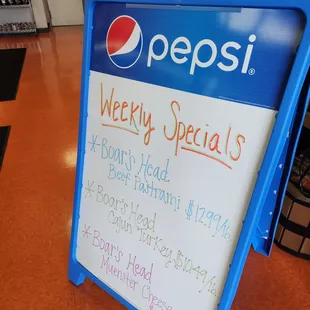 pepsi®
Weekly Specials
*Boar's Head
Beef Pastrami $12.99/lb
*Boar's Head
Cajun Turkey $10.49/lb
*Boar's Head
Muenster Cheese